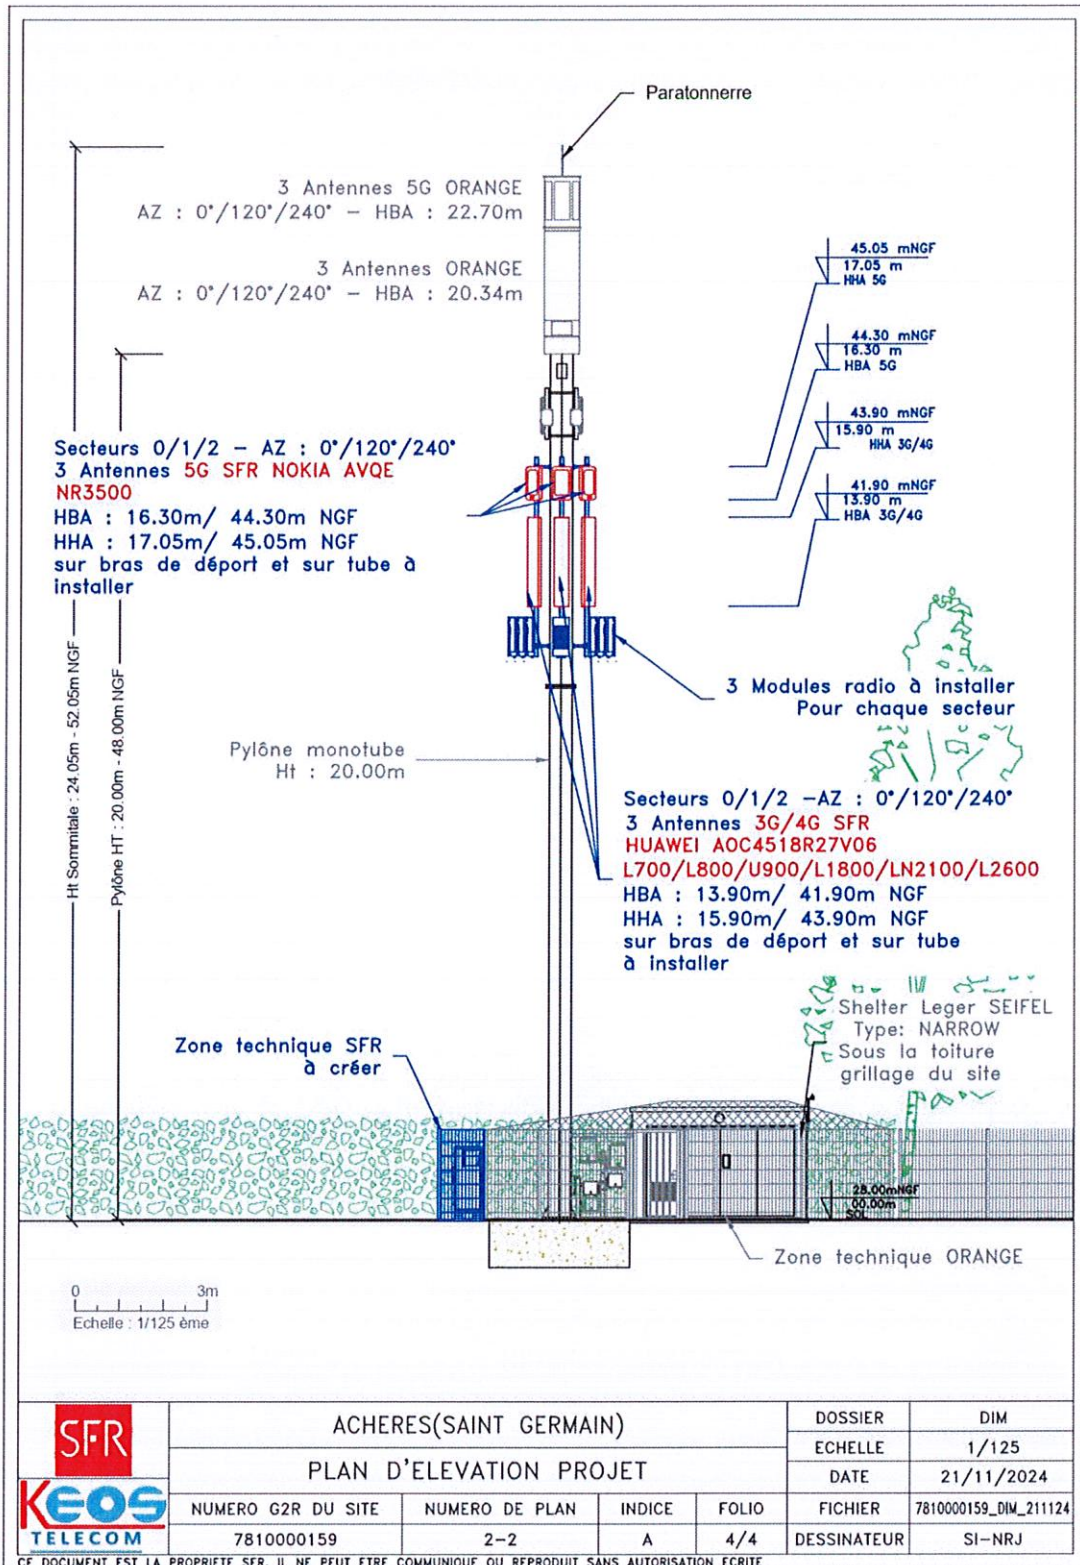 Paratonnerre
3 Antennes 5G ORANGE
AZ : 0°/120°/240° – HBA : 22.70m
3 Antennes ORANGE
AZ : 0°/120°/240° – HBA : 20.34m
45.05 mNGF
17.05 m
HHA 5G
44.30 mNGF
16.30 m
HBA 5G
43.90 mNGF
15.90 m
HHA 3G/4G
41.90 mNGF
13.90 m
HBA 3G/4G
Secteurs 0/1/2 – AZ : 0°/120°/240°
3 Antennes 5G SFR NOKIA AVQE
NR3500
HBA : 16.30m/ 44.30m NGF
HHA : 17.05m/ 45.05m NGF
sur bras de déport et sur tube à
installer
Ht Sommitale : 24.05m - 52.05m NGF
Pylône HT : 20.00m - 48.00m NGF
3 Modules radio à installer
Pour chaque secteur
Pylône monotube
Ht : 20.00m
Secteurs 0/1/2 –AZ : 0°/120°/240°
3 Antennes 3G/4G SFR
HUAWEI AOC4518R27V06
L700/L800/U900/L1800/LN2100/L2600
HBA : 13.90m/ 41.90m NGF
HHA : 15.90m/ 43.90m NGF
sur bras de déport et sur tube
à installer
Shelter Leger SEIFEL
Type: NARROW
Sous la toiture
grillage du site
Zone technique SFR
à créer
28.00mNGF
00.00m
SOL
Zone technique ORANGE
0 3m
Echelle : 1/125 ème
SFR
KEOS
TELECOM
ACHERES(SAINT GERMAIN)
PLAN D'ELEVATION PROJET
NUMERO G2R DU SITE NUMERO DE PLAN INDICE FOLIO
78100000159 2-2 A 4/4
DOSSIER DIM
ECHELLE 1/125
DATE 21/11/2024
FICHIER 7810000159_DIM_211124
DESSINATEUR SI-NRJ
CE DOCUMENT EST LA PROPRIETE SFR. IL NE PEUT ETRE COMMUNIQUE OU REPRODUIT SANS AUTORISATION ECRITE